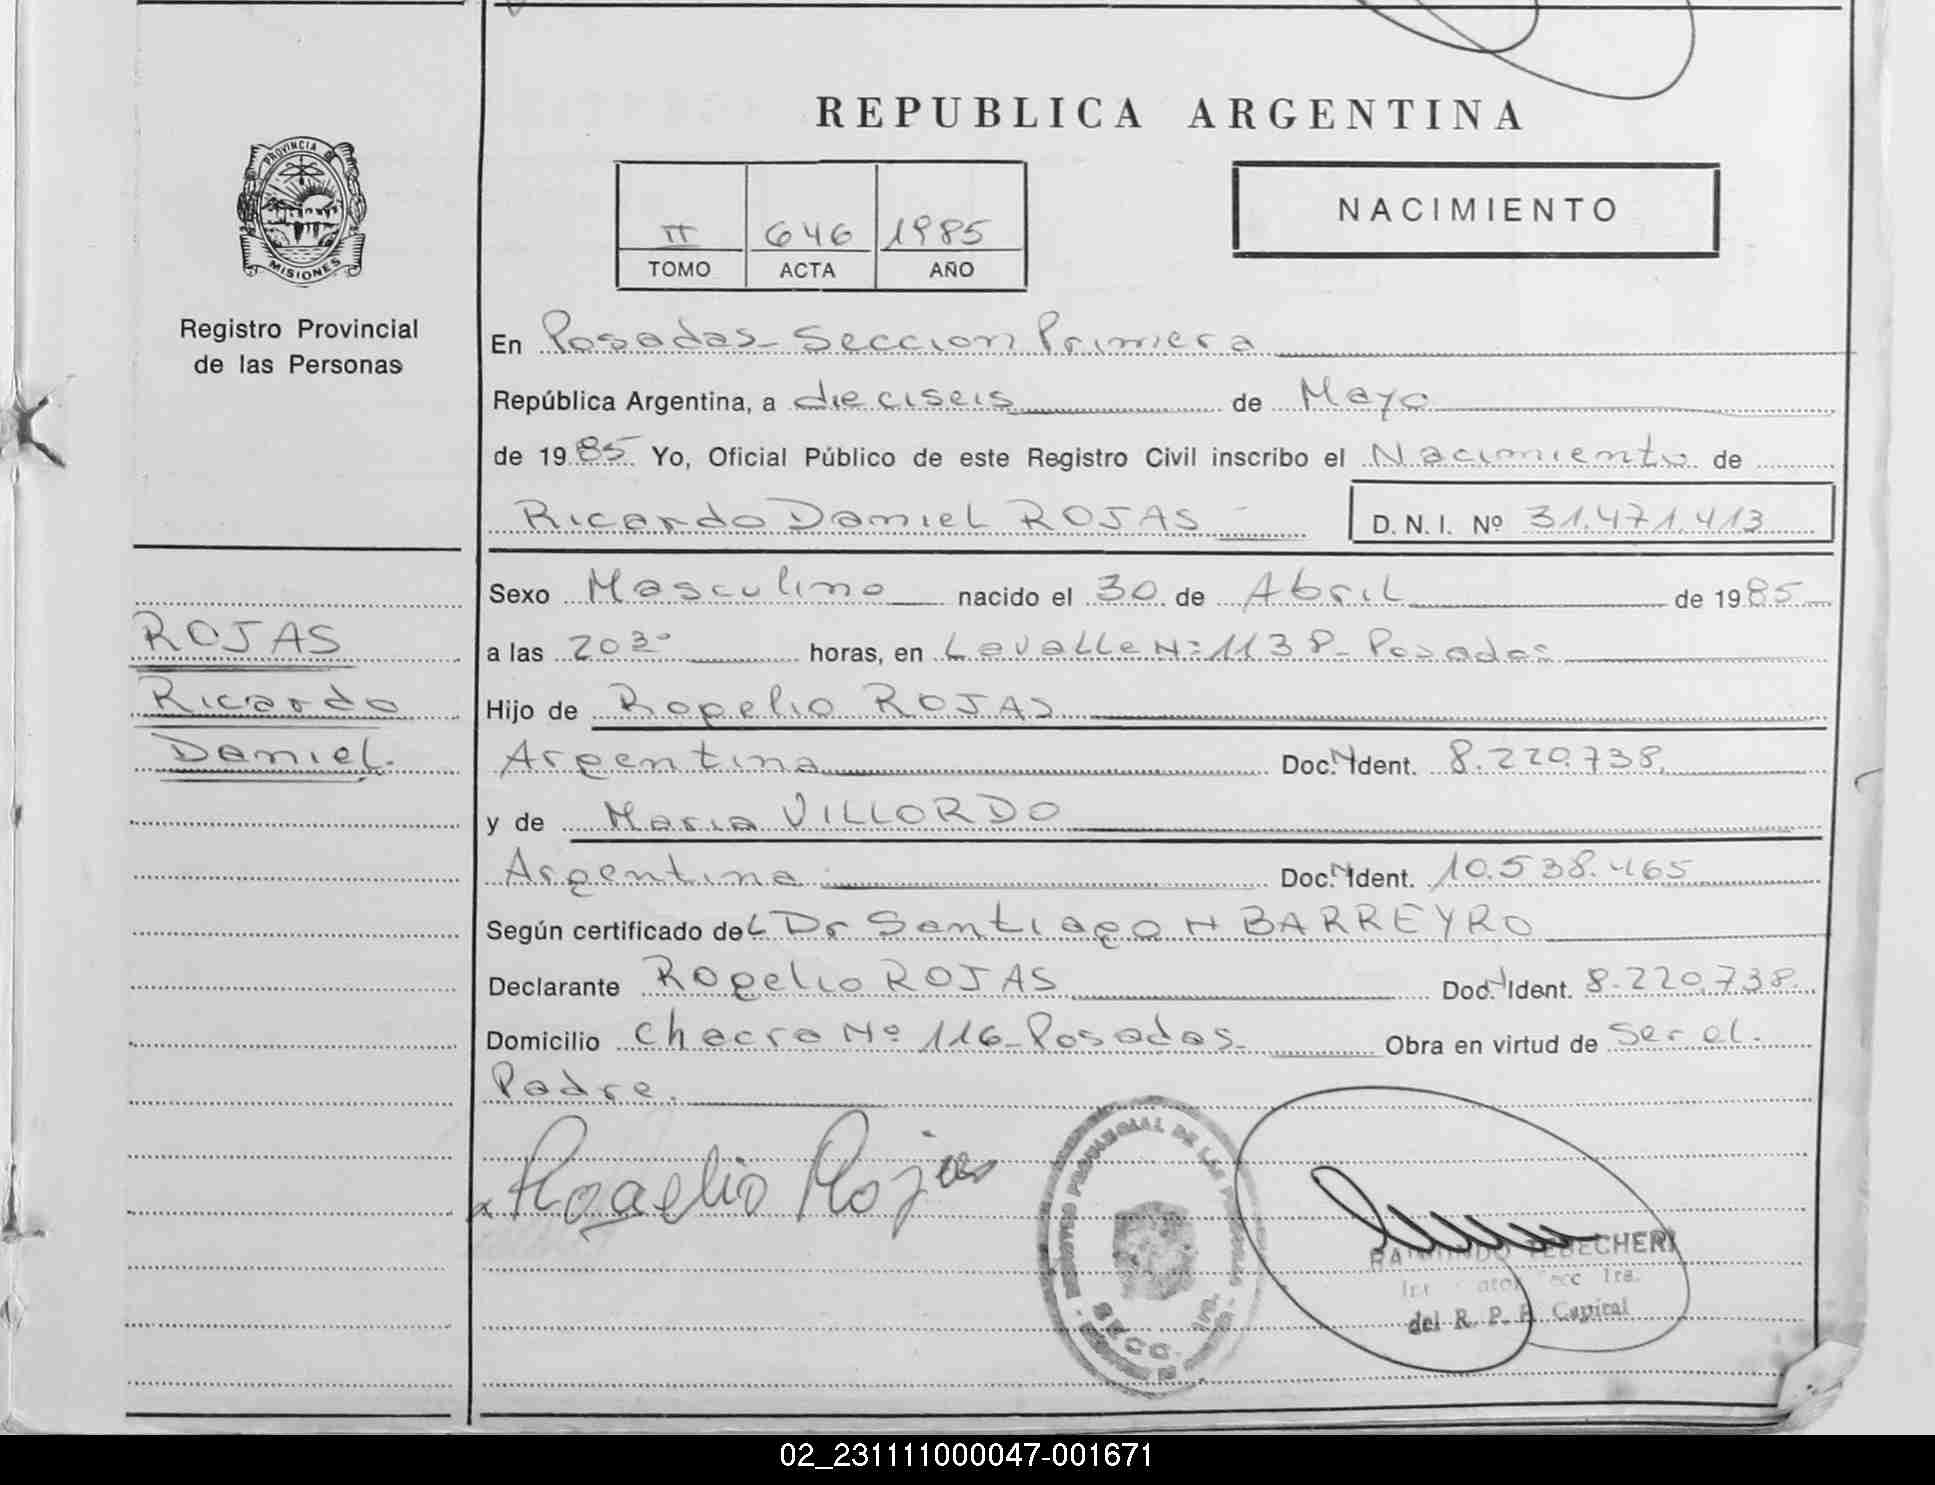 REPUBLICA ARGENTINA
PROVINCIA DE
MISIONES
Registro Provincial
de las Personas
II 646 1985
TOMO ACTA AÑO
NACIMIENTO
En Posadas - Seccion Primera
República Argentina, a dieciseis de Mayo
de 1985 Yo, Oficial Público de este Registro Civil inscribo el Nacimiento de
Ricardo Daniel ROJAS D.N.I. Nº 31.471.413
ROJAS
Ricardo
Daniel.
Sexo Masculino nacido el 30 de Abril de 1985
a las 20 30 horas, en Lavalle Nº 1138 - Posadas
Hijo de Rogelio ROJAS
Argentina Doc. N Ident. 8.220.738.
y de Maria VILLORDO
Argentina Doc. N Ident. 10.538.465
Según certificado del Dr Santiago H BARREYRO
Declarante Rogelio ROJAS Doc. N Ident. 8.220.738.
Domicilio Chacra Nº 116 - Posadas - Obra en virtud de ser el
Padre.
Rogelio Rojas
REGISTRO PROVINCIAL DE LAS PERSONAS
SECC. 1ra.
RAIMUNDO TEBECHERI
Secc 1ra.
del R. P. P. Capital
02_231111000047-001671